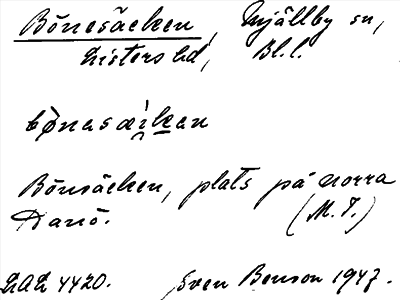 Bönesäcken, Mjällby sn,
Listers hd, Bl. l.
bønasæi̯kan
Bönsäcken, plats på norra
Hanö. (M. T.)
LAL 4420. Sven Benson 1947.